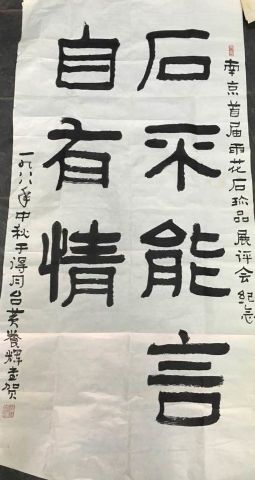 南京首届雨花石珍品展评会纪念
石不能言
自有情
一九八八年中秋于得月台黄養輝书贺